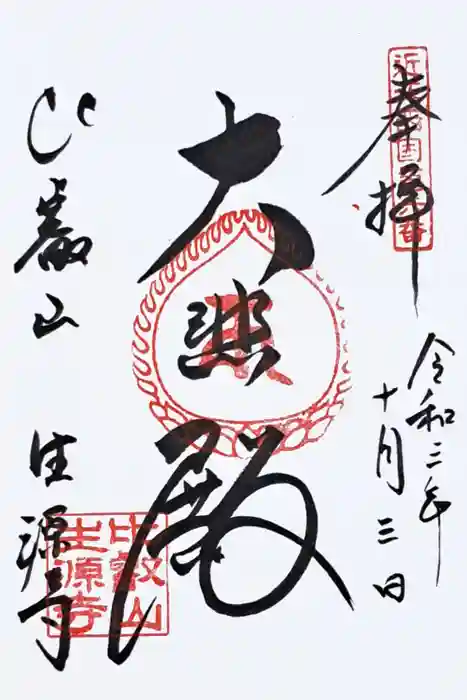 奉拝
令和三年
十月三日
大悲殿
比叡山
生源寺
比叡山
生源寺